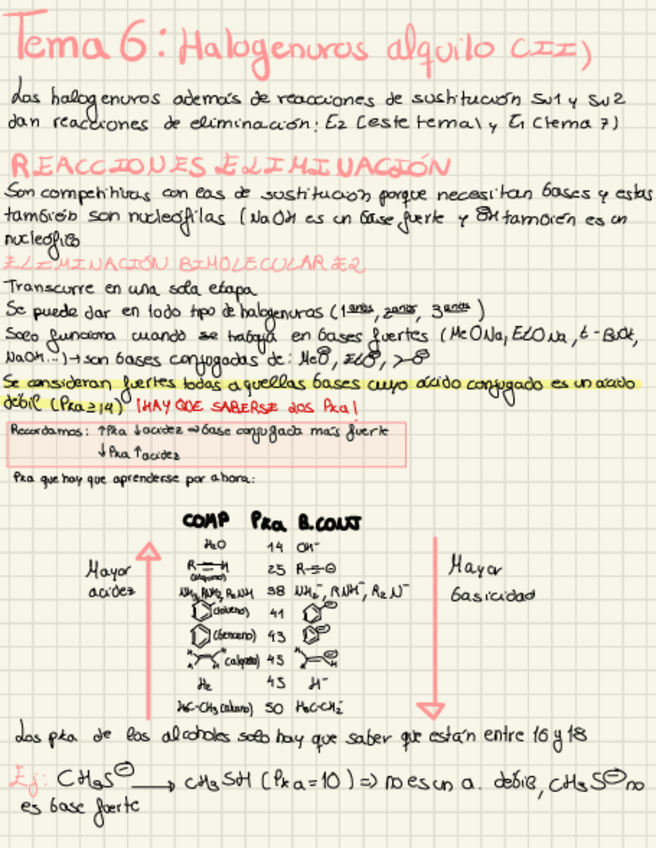 Tema 6: Halogenuros alquilo (II)
Los halogenuros además de reacciones de sustitución SN1 y SN2
dan reacciones de eliminación: E2 (este tema) y E1 (tema 7)
REACCIONES ELIMINACIÓN
Son competitivas con las de sustitución porque necesitan bases y estas
también son nucleófilas (NaOH es un base fuerte y ⊖OH también es un
nucleófilo
ELIMINACIÓN BIMOLECULAR E2
Transcurre en una sola etapa
Se puede dar en todo tipo de halogenuros (1arios, 2arios, 3arios)
Solo funciona cuando se trabaja en bases fuertes (MeONa, EtONa, t-BuOK,
NaOH...) → son bases conjugadas de: MeO⊖, EtO⊖,
Se consideran fuertes todas aquellas bases cuyo ácido conjugado es un acido
débil (Pka ≥ 14) ¡HAY QUE SABERSE LOS Pka!
Recordamos: ↑Pka ↓acidez ⇒ base conjugada más fuerte
↓Pka ↑acidez
Pka que hay que aprenderse por ahora:
COMP Pka B.CONJ
H2O 14 OH-
R≡H 25 R≡⊖
(alquino)
NH3, RNH2, R2NH 38 NH2-, RNH-, R2N-
(tolueno) 41 ⊖
(benceno) 43 ⊖
H H H (alqueno) 45 ⊖ H H
H2 45 H-
H3C-CH3 (alcano) 50 H3C-CH2-
Mayor
acidez
Mayor
basicidad
Los pka de los alcoholes solo hay que saber que están entre 16 y 18
Ej: CH3S⊖ → CH3SH (Pka=10) ⇒ no es un a. débil, CH3S⊖ no
es base fuerte